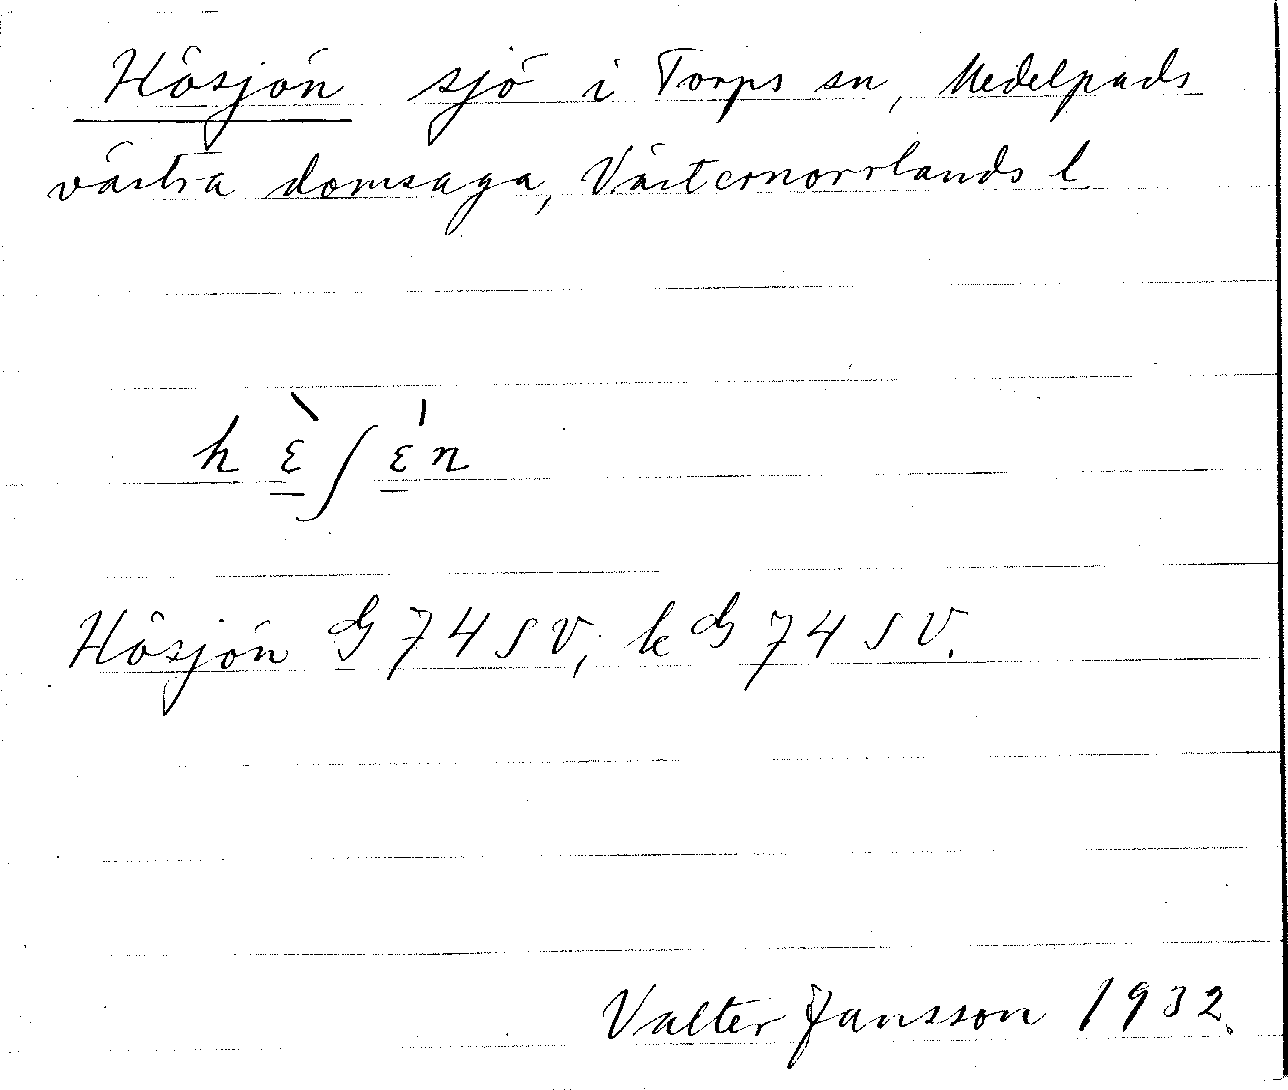 Hösjön sjö i Torps sn, Medelpads
västra domsaga, Västernorrlands l
h ɛ̀ ʃ ɛ́ n
Hösjön G 74 SV; k G 74 SV.
Valter Jansson 1932.